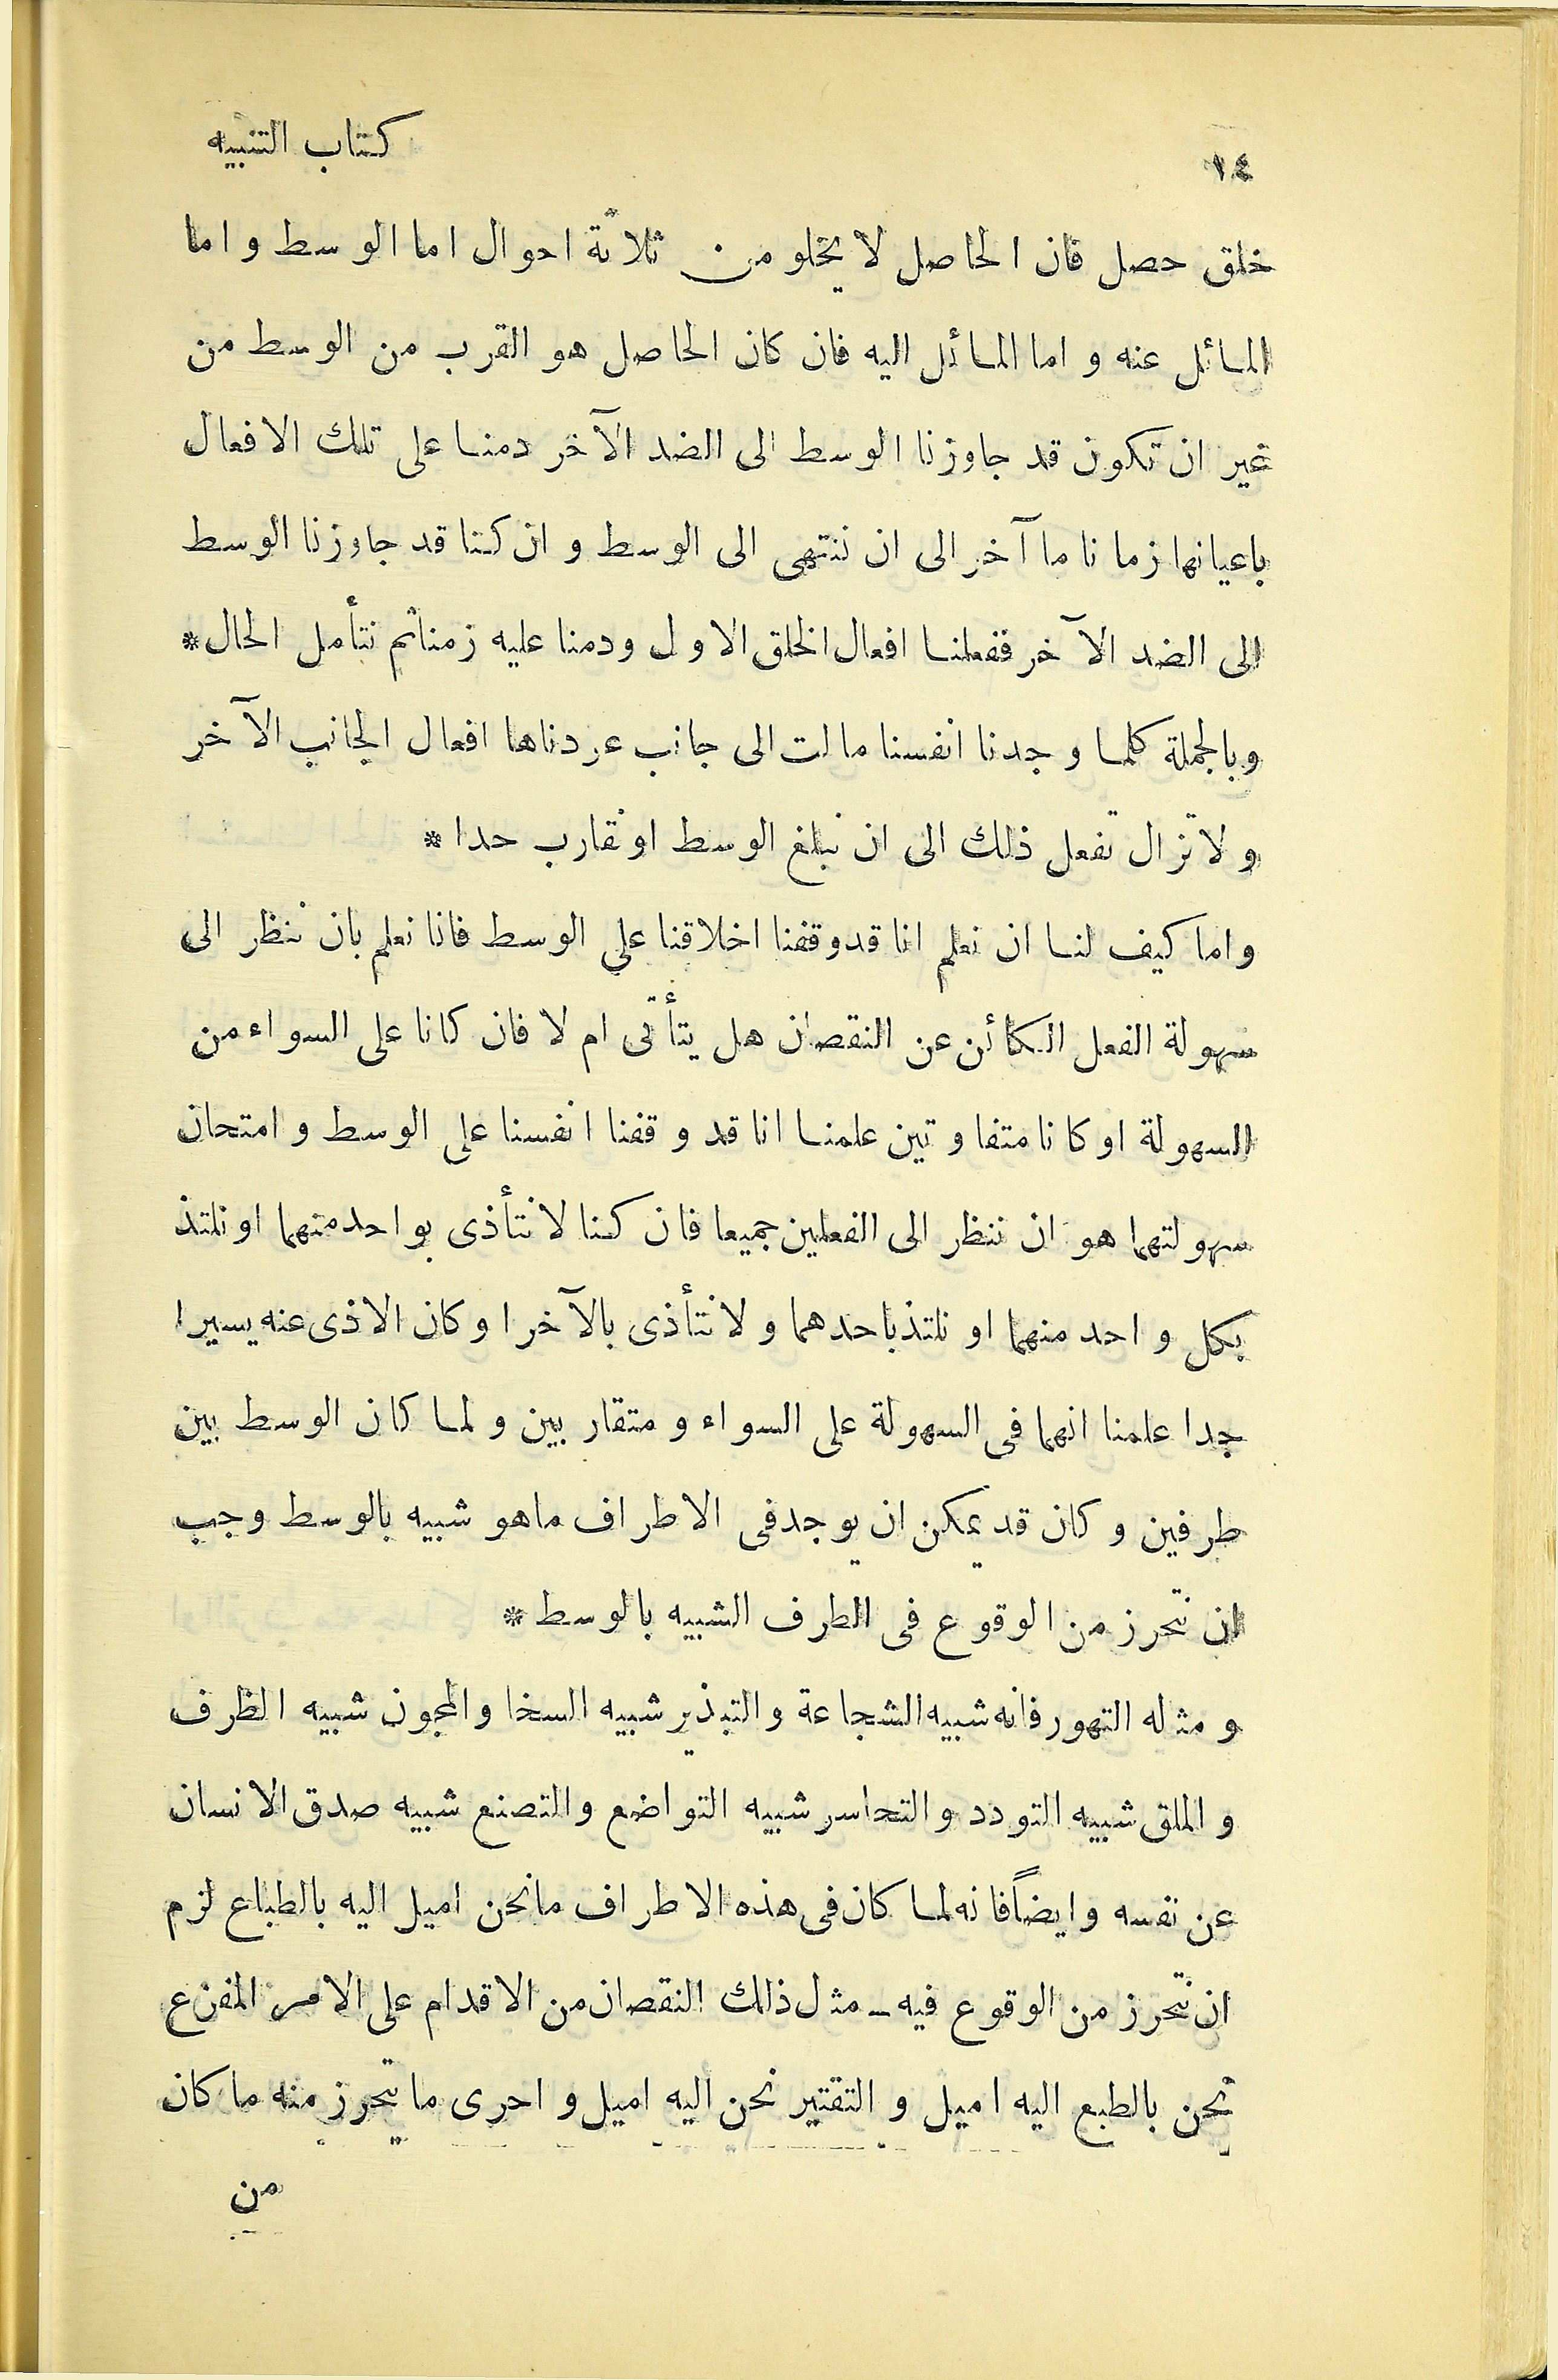 ١٤ كتاب التنبيه
خلق حصل فان الحاصل لا يخلو من ثلاثة احوال اما الوسط واما
المائل عنه و اما المائل اليه فان كان الحاصل هو القرب من الوسط من
غير ان تكون قد جاوزنا الوسط الى الضد الآخر دمنا على تلك الافعال
باعيانها زمانا ما آخر الى ان ننتهى الى الوسط و ان كنا قد جاوزنا الوسط
الى الضد الآخر ففعلنا افعال الخلق الاول ودمنا عليه زمنا ثم نتأمل الحال *
وبالجملة كلما وجدنا انفسنا مالت الى جانب عردناها افعال الجانب الآخر
ولا تزال تفعل ذلك الى ان نبلغ الوسط او نقارب حدا *
واما كيف لنا ان نعلم انا قدوقفنا اخلاقنا على الوسط فانا نعلم بان ننظر الى
سهولة الفعل الكائن عن النقصان هل يتأتى ام لا فان كانا على السواء من
السهولة اوكانا متفاوتين علمنا انا قد وقفنا انفسنا على الوسط و امتحان
سهولتهما هو ان ننظر الى الفعلين جميعا فان كنا لا نتأذى بواحد منهما او نلتذ
بكل واحد منهما او نلتذ باحدهما و لا نتأذى بالآخر اوكان الاذى عنه يسيرا
جدا علمنا انهما فى السهولة على السواء و متقاربين و لما كان الوسط بين
طرفين وكان قد يمكن ان يوجد فى الاطراف ماهو شبيه بالوسط وجب
ان نتحرز من الوقوع فى الطرف الشبيه بالوسط *
و مثله التهور فانه شبيه الشجاعة والتبذير شبيه السخا والمجون شبيه الظرف
و الملق شبيه التودد و التحاسر شبيه التواضع والتصنع شبيه صدق الانسان
عن نفسه وايضاً فانه لما كان فى هذه الاطراف ما نحن اميل اليه بالطباع لزم
ان نتحرز من الوقوع فيه ــ مثل ذلك النقصان من الاقدام على الامر المفزع
نحن بالطبع اليه اميل و التقتير نحن اليه اميل و احرى ما يتحرز منه ما كان
من